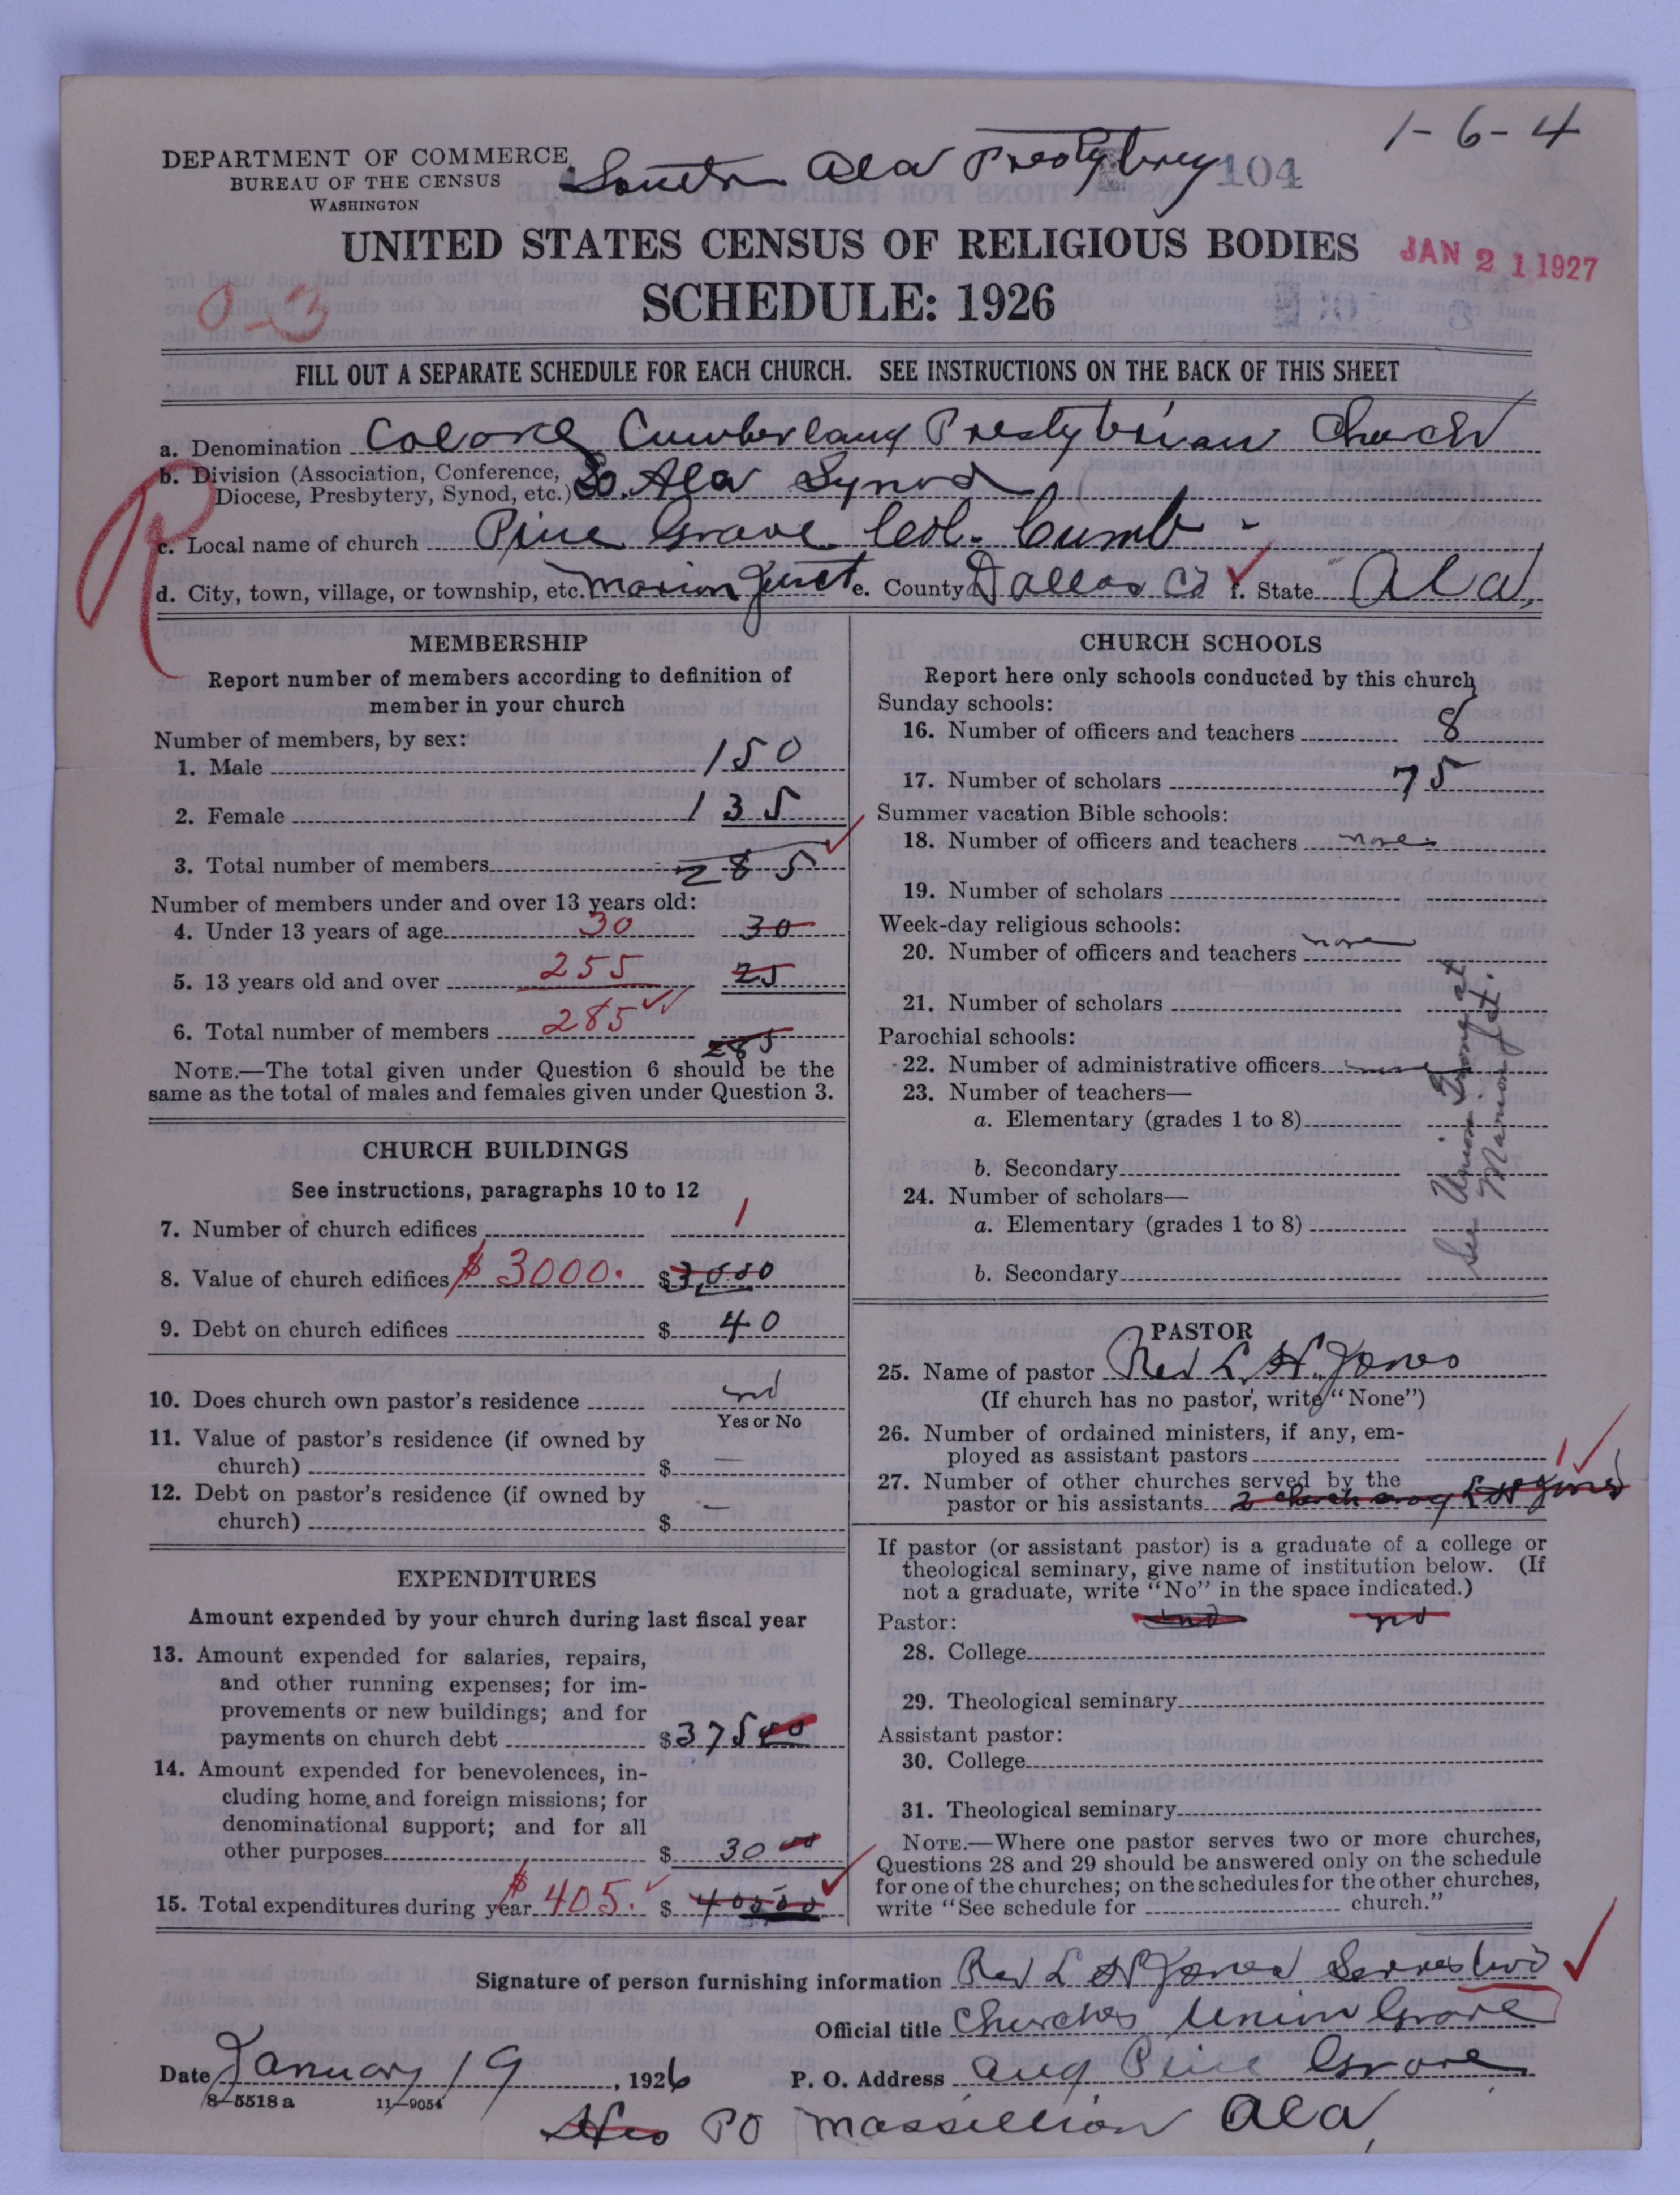 1-6-4
DEPARTMENT OF COMMERCE
BUREAU OF THE CENSUS
WASHINGTON
South Ala Presbytery 104
UNITED STATES CENSUS OF RELIGIOUS BODIES
JAN 21 1927
SCHEDULE: 1926
0-3
FILL OUT A SEPARATE SCHEDULE FOR EACH CHURCH. SEE INSTRUCTIONS ON THE BACK OF THIS SHEET
R
a. Denomination Colored Cumberland Presbyterian Church
b. Division (Association, Conference,
Diocese, Presbytery, Synod, etc.) So. Ala Synod
c. Local name of church Pine Grove Col. Cumb -
d. City, town, village, or township, etc. Marion Junct e. County Dallas Co f. State Ala.
MEMBERSHIP
Report number of members according to definition of
member in your church
Number of members, by sex:
1. Male 150
2. Female 135
3. Total number of members 285
Number of members under and over 13 years old:
4. Under 13 years of age 30 30
5. 13 years old and over 255 25
6. Total number of members 285 285
NOTE.—The total given under Question 6 should be the
same as the total of males and females given under Question 3.
CHURCH BUILDINGS
See instructions, paragraphs 10 to 12
7. Number of church edifices 1
8. Value of church edifices $3000. $3,000
9. Debt on church edifices $ 40
10. Does church own pastor's residence no
Yes or No
11. Value of pastor's residence (if owned by
church) $ —
12. Debt on pastor's residence (if owned by
church) $ —
EXPENDITURES
Amount expended by your church during last fiscal year
13. Amount expended for salaries, repairs,
and other running expenses; for im-
provements or new buildings; and for
payments on church debt $375 00
14. Amount expended for benevolences, in-
cluding home and foreign missions; for
denominational support; and for all
other purposes $ 30 00
15. Total expenditures during year $405. $
CHURCH SCHOOLS
Report here only schools conducted by this church
Sunday schools:
16. Number of officers and teachers 8
17. Number of scholars 75
Summer vacation Bible schools:
18. Number of officers and teachers none
19. Number of scholars
Week-day religious schools:
20. Number of officers and teachers none
21. Number of scholars
Parochial schools:
22. Number of administrative officers none
23. Number of teachers—
a. Elementary (grades 1 to 8)
b. Secondary
24. Number of scholars—
a. Elementary (grades 1 to 8)
b. Secondary
See Union Grove at
Marion Jct.
PASTOR
25. Name of pastor Rev L. H. Jones
(If church has no pastor, write "None")
26. Number of ordained ministers, if any, em-
ployed as assistant pastors
27. Number of other churches served by the 1
pastor or his assistants 2 church L H Jones
If pastor (or assistant pastor) is a graduate of a college or
theological seminary, give name of institution below. (If
not a graduate, write "No" in the space indicated.)
Pastor: no no
28. College
29. Theological seminary
Assistant pastor:
30. College
31. Theological seminary
NOTE.—Where one pastor serves two or more churches,
Questions 28 and 29 should be answered only on the schedule
for one of the churches; on the schedules for the other churches,
write "See schedule for church."
Signature of person furnishing information Rev L H Jones Serves two
Official title Churches Union Grove
Date January 19, 1926 P. O. Address and Pine Grove
8-5518a 11-9054
His PO Massillion Ala,